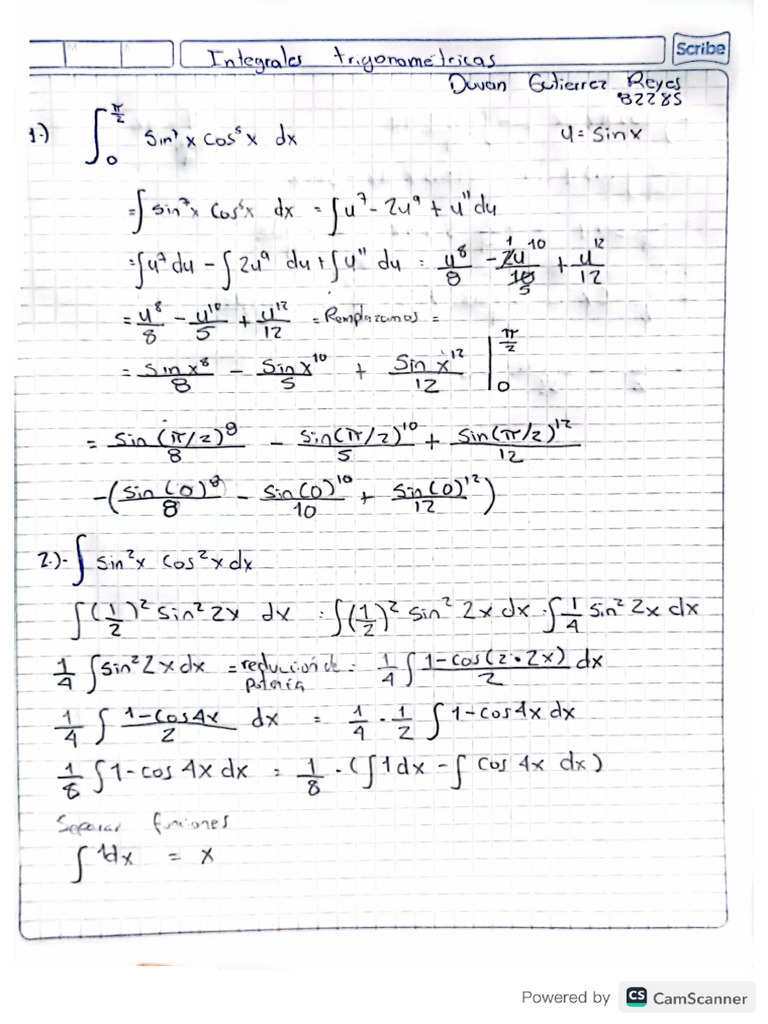 M A
Integrales trigonométricas Scribe
Duvan Gutierrez Reyes
82285
1.) ∫₀^(π/2) sin⁷x cos⁵x dx u = sin x
= ∫ sin⁷x cos⁵x dx = ∫ u⁷ - 2u⁹ + u¹¹ du
= ∫ u⁷ du - ∫ 2u⁹ du + ∫ u¹¹ du = u⁸/8 - 2u¹⁰/10 1/5 + u¹²/12
= u⁸/8 - u¹⁰/5 + u¹²/12 = Remplazamos =
= sin x⁸/8 - sin x¹⁰/5 + sin x¹²/12 |₀^(π/2)
= sin(π/2)⁸/8 - sin(π/2)¹⁰/5 + sin(π/2)¹²/12
-(sin(0)⁸/8 - sin(0)¹⁰/10 + sin(0)¹²/12)
2.)- ∫ sin²x cos²x dx
∫(1/2)² sin² 2x dx = ∫(1/2)² sin² 2x dx = ∫ 1/4 sin² 2x dx
1/4 ∫ sin² 2x dx = reducción de potencia = 1/4 ∫ 1-cos(2·2x)/2 dx
1/4 ∫ 1-cos4x/2 dx = 1/4 · 1/2 ∫ 1-cos4x dx
1/8 ∫ 1-cos 4x dx = 1/8 · (∫ 1dx - ∫ cos 4x dx)
Separar funciones
∫ 1dx = x
Powered by CS CamScanner